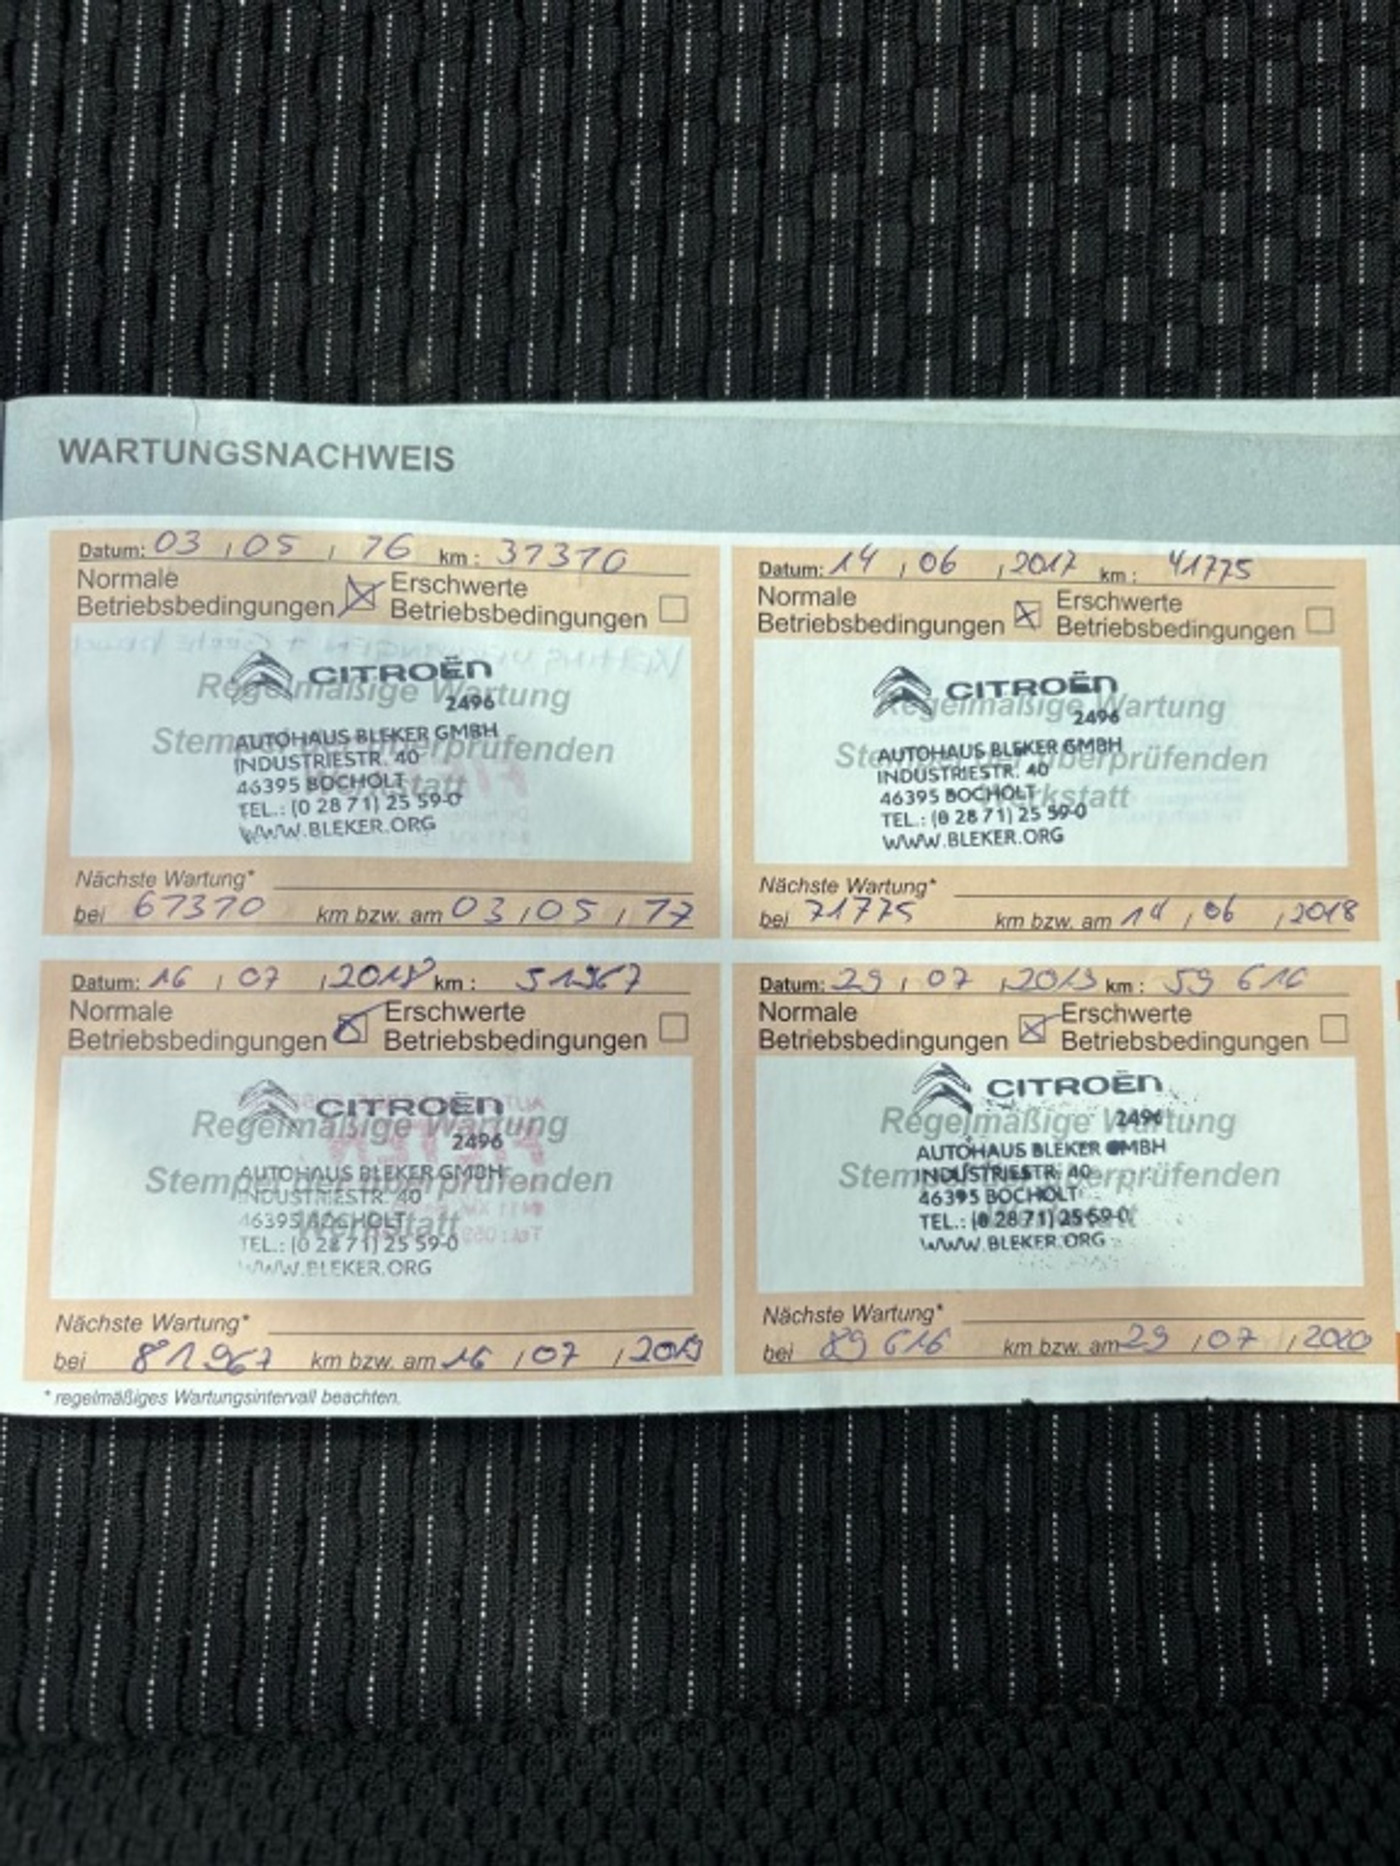 WARTUNGSNACHWEIS
Datum: 03 / 05 / 16 km : 31310
Normale Betriebsbedingungen ☒ Erschwerte Betriebsbedingungen ☐
Regelmäßige Wartung
Stempel der überprüfenden
Werkstatt
CITROËN
2496
AUTOHAUS BLEKER GMBH
INDUSTRIESTR. 40
46395 BOCHOLT
TEL.: (0 28 71) 25 59-0
WWW.BLEKER.ORG
Nächste Wartung*
bei 61310 km bzw. am 03 / 05 / 17
Datum: 14 / 06 / 2017 km : 41775
Normale Betriebsbedingungen ☒ Erschwerte Betriebsbedingungen ☐
Regelmäßige Wartung
Stempel der überprüfenden
Werkstatt
CITROËN
2496
AUTOHAUS BLEKER GMBH
INDUSTRIESTR. 40
46395 BOCHOLT
TEL.: (0 28 71) 25 59-0
WWW.BLEKER.ORG
Nächste Wartung*
bei 71775 km bzw. am 14 / 06 / 2018
Datum: 16 / 07 / 2018 km : 51967
Normale Betriebsbedingungen ☒ Erschwerte Betriebsbedingungen ☐
Regelmäßige Wartung
Stempel der überprüfenden
Werkstatt
CITROËN
2496
AUTOHAUS BLEKER GMBH
INDUSTRIESTR. 40
46395 BOCHOLT
TEL.: (0 28 71) 25 59-0
WWW.BLEKER.ORG
Nächste Wartung*
bei 81967 km bzw. am 16 / 07 / 2019
Datum: 29 / 07 / 2019 km : 59 616
Normale Betriebsbedingungen ☒ Erschwerte Betriebsbedingungen ☐
Regelmäßige Wartung
Stempel der überprüfenden
Werkstatt
CITROËN
2496
AUTOHAUS BLEKER GMBH
INDUSTRIESTR. 40
46395 BOCHOLT
TEL.: (0 28 71) 25 59-0
WWW.BLEKER.ORG
Nächste Wartung*
bei 89 616 km bzw. am 29 / 07 / 2020
* regelmäßiges Wartungsintervall beachten.